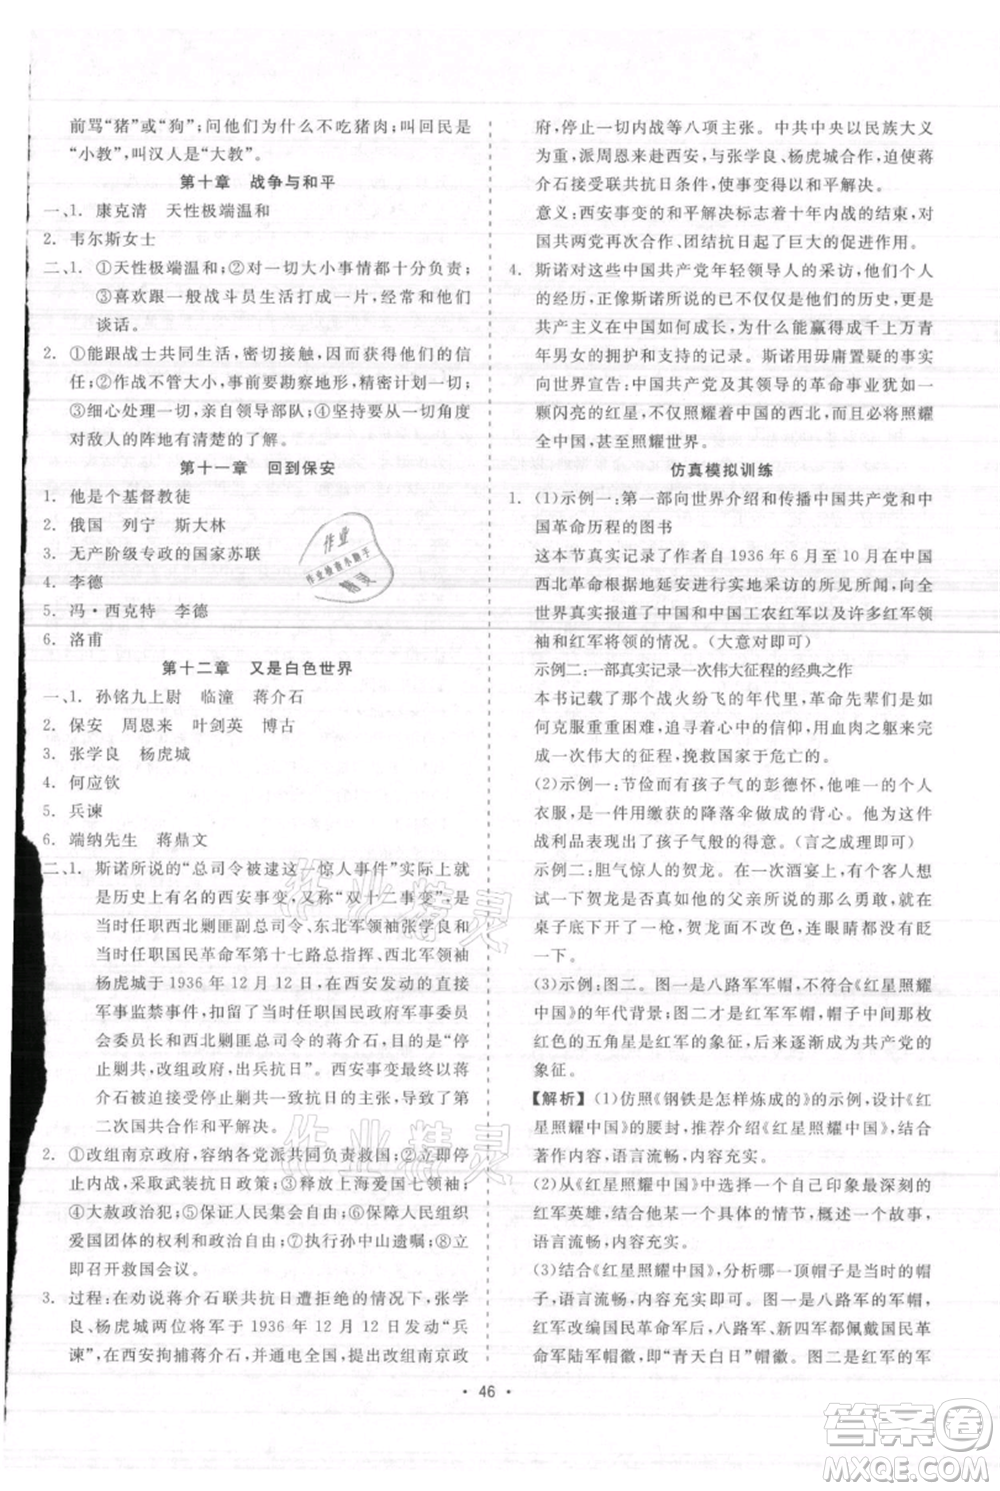 前骂“猪”或“狗”;问他们为什么不吃猪肉;叫回民是
“小教”,叫汉人是“大教”。
第十章 战争与和平
一、1. 康克清 天性极端温和
2. 韦尔斯女士
二、1. ①天性极端温和;②对一切大小事情都十分负责;
③喜欢跟一般战斗员生活打成一片,经常和他们
谈话。
2. ①能跟战士共同生活,密切接触,获得他们的信
任;②作战不管大小,都要勘察地形,精密计划一切;
③细心处理一切,亲自领导部队;④坚持要从各角度
对敌人的阵地有清楚的了解。
第十一章 回到保安
1. 他是个基督教徒
2. 俄国 列宁 斯大林
3. 无产阶级专政的国家苏联
4. 李德
5. 冯·西克特 李德
6. 洛甫
第十二章 又是白色世界
一、1. 孙铭九上尉 临潼 蒋介石
2. 保安 周恩来 叶剑英 博古
3. 张学良 杨虎城
4. 何应钦
5. 兵谏
6. 端纳先生 蒋鼎文
二、1. 斯诺所说的“总司令被逮这一惊人事件”实际上就
是历史上有名的西安事变,又称“双十二事变”,是
当时任职西北剿匪副总司令、东北军领袖张学良和
当时任职国民革命军第十七路总指挥、西北军领袖
杨虎城于1936年12月12日,在西安发动的直接
军事监禁事件,扣留了时任国民政府军事委员会
委员长和西北剿匪总司令的蒋介石,目的是“停
止剿共,改组政府,出兵抗日”。西安事变最终以蒋
介石接受停止剿共一致抗日的主张,促成了第
二次国共合作和平解决。
2. ①改组南京政府,容纳各党派共同负责救国;②停止
内战,采取武装抗日政策;③释放上海爱国七领袖;
④大赦政治犯;⑤保证人民集会自由;⑥保障人民组织
爱国团体的权利和政治自由;⑦实行孙中山遗嘱;⑧立
即召开救国会议。
3. 过程:在劝说蒋介石联共抗日遭拒绝的情况下,张学
良、杨虎城两位将军于1936年12月12日发动“兵
谏”,在西安拘捕蒋介石,并通电全国,提出改组南京政
府,停止一切内战等八项主张。中共中央以民族大义
为重,派周恩来赴西安,与张学良、杨虎城合作,迫使蒋
介石接受联共抗日条件,西安事变得以和平解决。
意义:西安事变的和平解决标志着十年内战的结束,对
国共两党再次合作、团结抗日起了巨大的促进作用。
4. 斯诺对这些中国共产党年轻领导人的采访,对他们个人
的经历,正像斯诺所说的已不仅仅是他们的历史,更是
共产主义在中国如何成长,为什么能赢得成千上万青
年男女的拥护和支持的记录。斯诺用毋庸置疑的事实
向世界宣告:中国共产党及其领导的革命事业犹如一
颗闪亮的红星,不仅照耀着中国的西北,而且必将照耀
全中国,甚至照耀世界。
仿真模拟训练
1. (1)示例一:第一部向世界介绍和传播中国共产党和中
国革命历程的图书
这本节真实记录了作者自1936年6月至10月在中国
西北革命根据地延安进行实地采访的所见所闻,向全
世界真实报道了中国和中国工农红军以及许多红军领
袖和红军将领的情况。(大意对即可)
示例二:一部真实记录一次伟大征程的经典之作
本书记载了那个战火纷飞的年代里,革命先辈们是如
何克服重重困难,守卫着心中的信仰,用血肉之躯完成
一次伟大的征程,挽救国家于危亡的。
(2)示例一:节俭而又有孩子气的彭德怀,他唯一的个人
衣服,是一件用缴获的降落伞做成的背心。他为有这件
战利品表现出了孩子气般的得意。(言之成理即可)
示例二:胆气惊人的贺龙,在一次酒宴上,父亲向众人
吹嘘贺龙如何勇敢,有个客人想试试他的胆量,就在
桌子底下开了一枪,贺龙面不改色,连眼睛都没有眨
一下。
(3)示例:图二。图一是八路军军帽,不符合《红星照耀
中国》的年代背景;图二才是红军军帽,帽子中间那个
红色的五角星是红军的象征,后来逐渐成为共产党的
象征。
【解析】(1)仿照《钢铁是怎样炼成的》的示例,设计《红
星照耀中国》的腰封,推荐介绍《红星照耀中国》。根据
示例,语言流畅,内容充实。
(2)从《红星照耀中国》中选择一个自己印象最深刻的
红军英雄,结合一个具体的情节,概括他的一个特点,
语言流畅,内容充实。
(3)结合《红星照耀中国》,分析哪一顶帽子更适合作
为封面插图。图一是八路军和新四军的军帽,在
红军改编国民革命军时,八路军、新四军都佩戴国民革
命军陆军军帽帽徽,即“青天白日”帽徽。图二是红军
· 46 ·
作业
作业检查小助手
精灵
作业精灵
作业精灵
答案圈
MXQE.COM